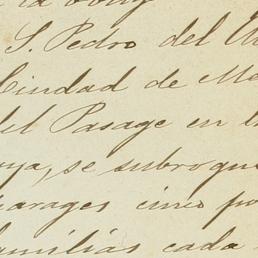 S. Pedro del
Ciudad de
del Pasage en
se subrogue
parages cinco
familias cada